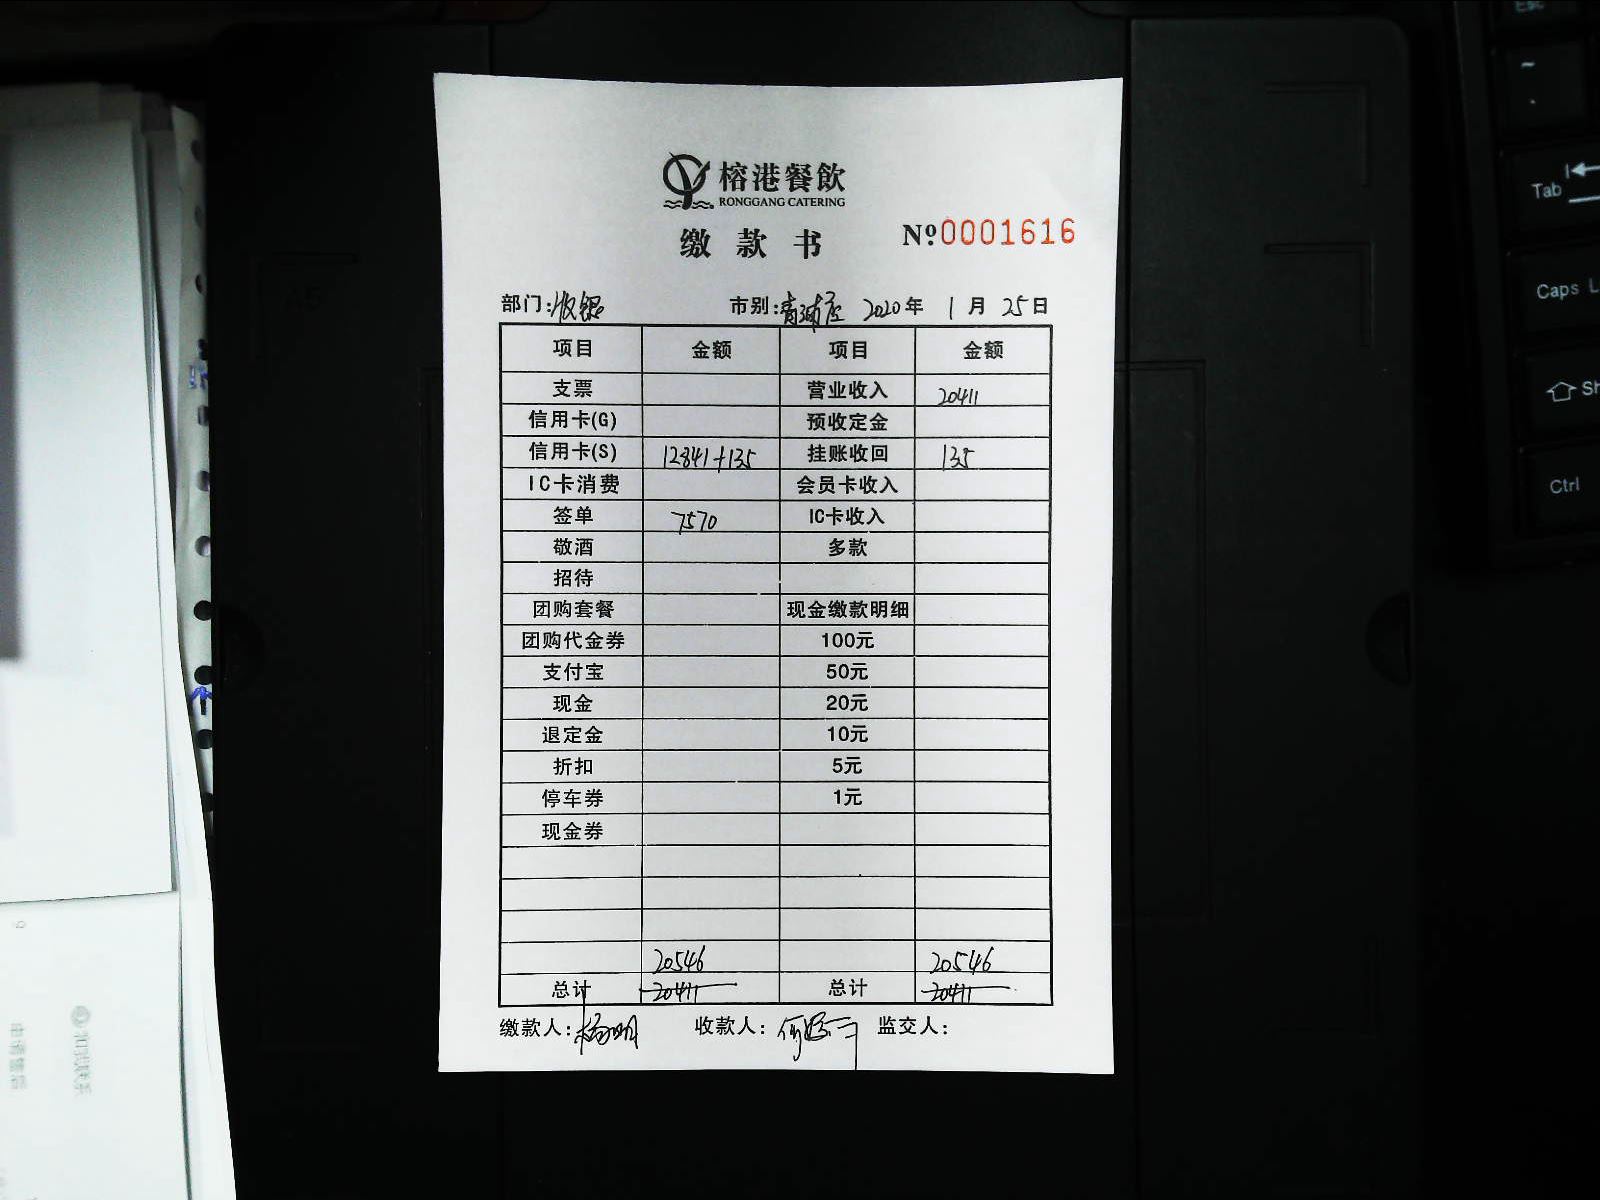 榕港餐飲
RONGGANG CATERING
缴款书 №0001616
部门:收银 市别:青浦店 2020年 1月 25日
项目 金额 项目 金额
支票 营业收入 20411
信用卡(G) 预收定金
信用卡(S) 12841+135 挂账收回 135
IC卡消费 会员卡收入
签单 7570 IC卡收入
敬酒 多款
招待
团购套餐 现金缴款明细
团购代金券 100元
支付宝 50元
现金 20元
退定金 10元
折扣 5元
停车券 1元
现金券
20546 20546
总计 20411 总计 20411
缴款人: 收款人: 监交人:
Esc
Tab
Caps L
Sh
Ctrl
A5